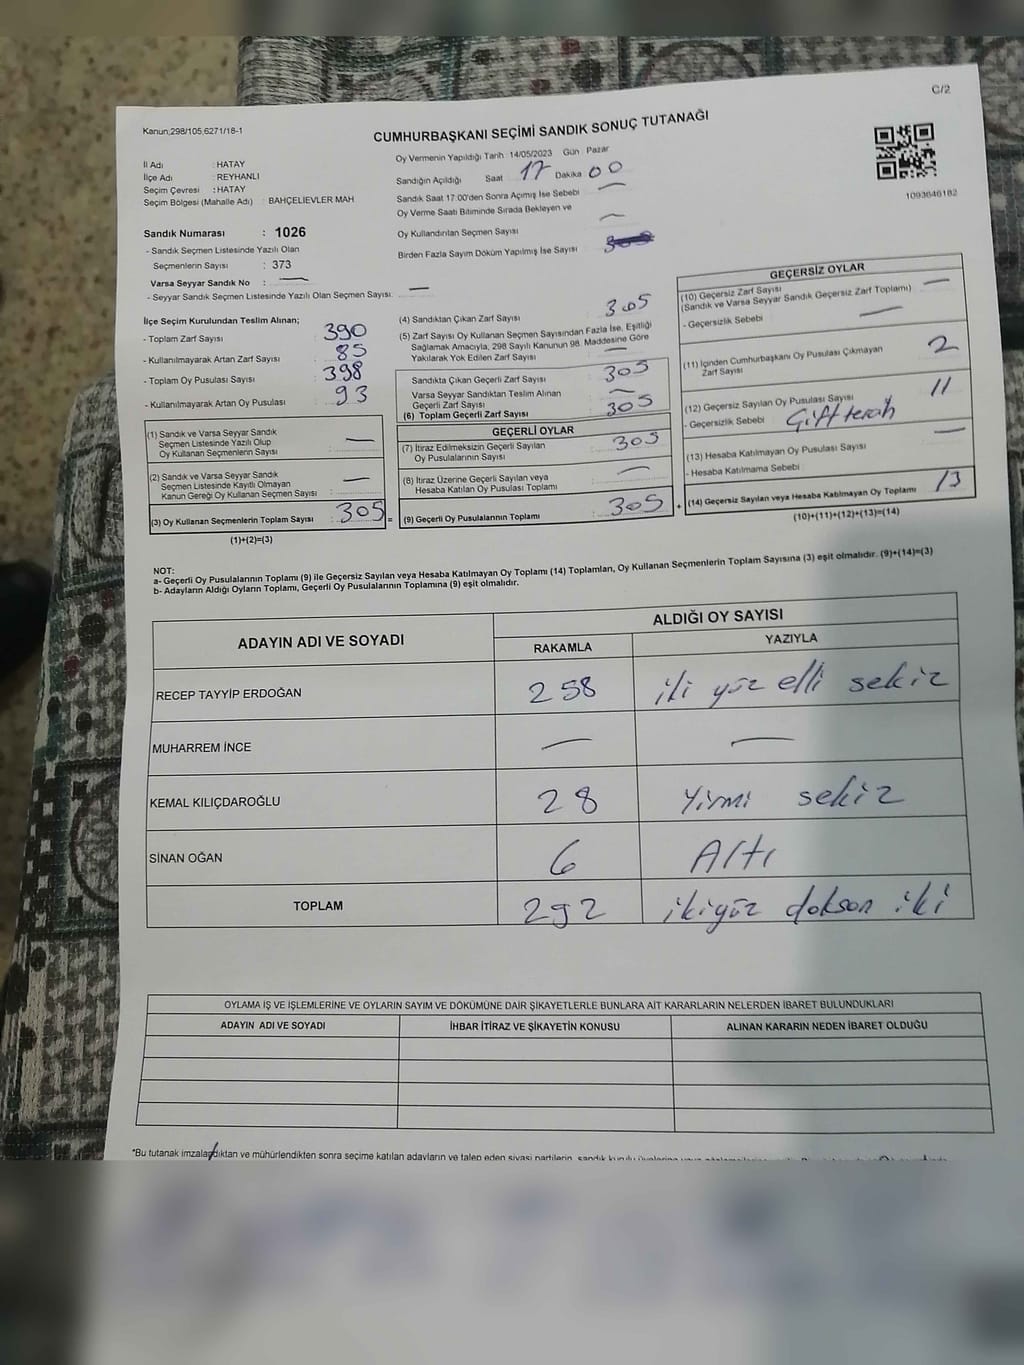 C/2
Kanun:298/105,6271/18-1
CUMHURBAŞKANI SEÇİMİ SANDIK SONUÇ TUTANAĞI
İl Adı : HATAY
İlçe Adı : REYHANLI
Seçim Çevresi : HATAY
Seçim Bölgesi (Mahalle Adı) : BAHÇELİEVLER MAH
Sandık Numarası : 1026
- Sandık Seçmen Listesinde Yazılı Olan
Seçmenlerin Sayısı : 373
Varsa Seyyar Sandık No : —
- Seyyar Sandık Seçmen Listesinde Yazılı Olan Seçmen Sayısı: —
Oy Vermenin Yapıldığı Tarih : 14/05/2023 Gün : Pazar
Sandığın Açıldığı Saat 17 Dakika 00
Sandık Saat 17:00'den Sonra Açımış İse Sebebi —
Oy Verme Saati Bitiminde Sırada Bekleyen ve
Oy Kullandırılan Seçmen Sayısı —
Birden Fazla Sayım Döküm Yapılmış İse Sayısı
1093646182
İlçe Seçim Kurulundan Teslim Alınan;
- Toplam Zarf Sayısı 390
- Kullanılmayarak Artan Zarf Sayısı 85
- Toplam Oy Pusulası Sayısı 398
- Kullanılmayarak Artan Oy Pusulası 93
(1) Sandık ve Varsa Seyyar Sandık
Seçmen Listesinde Yazılı Olup
Oy Kullanan Seçmenlerin Sayısı —
(2) Sandık ve Varsa Seyyar Sandık
Seçmen Listesinde Kaydı Olmayan
Kanun Gereği Oy Kullanan Seçmen Sayısı —
(3) Oy Kullanan Seçmenlerin Toplam Sayısı : 305 =
(1)+(2)=(3)
(4) Sandıktan Çıkan Zarf Sayısı 305
(5) Zarf Sayısı Oy Kullanan Seçmen Sayısından Fazla İse, Eşitliği
Sağlamak Amacıyla, 298 Sayılı Kanunun 98. Maddesine Göre
Yakılarak Yok Edilen Zarf Sayısı —
Sandıkta Çıkan Geçerli Zarf Sayısı 305
Varsa Seyyar Sandıktan Teslim Alınan
Geçerli Zarf Sayısı —
(6) Toplam Geçerli Zarf Sayısı 305
GEÇERLİ OYLAR
(7) İtiraz Edilmeksizin Geçerli Sayılan
Oy Pusulalarının Sayısı 305
(8) İtiraz Üzerine Geçerli Sayılan veya
Hesaba Katılan Oy Pusulası Toplamı —
(9) Geçerli Oy Pusulalarının Toplamı : 305 +
GEÇERSİZ OYLAR
(10) Geçersiz Zarf Sayısı —
(Sandık ve Varsa Seyyar Sandık Geçersiz Zarf Toplamı)
- Geçersizlik Sebebi —
(11) İçinden Cumhurbaşkanı Oy Pusulası Çıkmayan
Zarf Sayısı 2
(12) Geçersiz Sayılan Oy Pusulası Sayısı 11
- Geçersizlik Sebebi Çift tercih
(13) Hesaba Katılmayan Oy Pusulası Sayısı —
- Hesaba Katılmama Sebebi
(14) Geçersiz Sayılan veya Hesaba Katılmayan Oy Toplamı 13
(10)+(11)+(12)+(13)=(14)
NOT:
a- Geçerli Oy Pusulalarının Toplamı (9) ile Geçersiz Sayılan veya Hesaba Katılmayan Oy Toplamı (14) Toplamları, Oy Kullanan Seçmenlerin Toplam Sayısına (3) eşit olmalıdır. (9)+(14)=(3)
b- Adayların Aldığı Oyların Toplamı, Geçerli Oy Pusulalarının Toplamına (9) eşit olmalıdır.
ADAYIN ADI VE SOYADI
ALDIĞI OY SAYISI
RAKAMLA YAZIYLA
RECEP TAYYİP ERDOĞAN 258 iki yüz elli sekiz
MUHARREM İNCE — —
KEMAL KILIÇDAROĞLU 28 Yirmi sekiz
SİNAN OĞAN 6 Altı
TOPLAM 292 ikiyüz dokson iki
OYLAMA İŞ VE İŞLEMLERİNE VE OYLARIN SAYIM VE DÖKÜMÜNE DAİR ŞİKAYETLERLE BUNLARA AİT KARARLARIN NELERDEN İBARET BULUNDUKLARI
ADAYIN ADI VE SOYADI İHBAR İTİRAZ VE ŞİKAYETİN KONUSU ALINAN KARARIN NEDEN İBARET OLDUĞU
*Bu tutanak imzalandıktan ve mühürlendikten sonra seçime katılan adayların ve talep eden siyasi partilerin, sandık kurulu